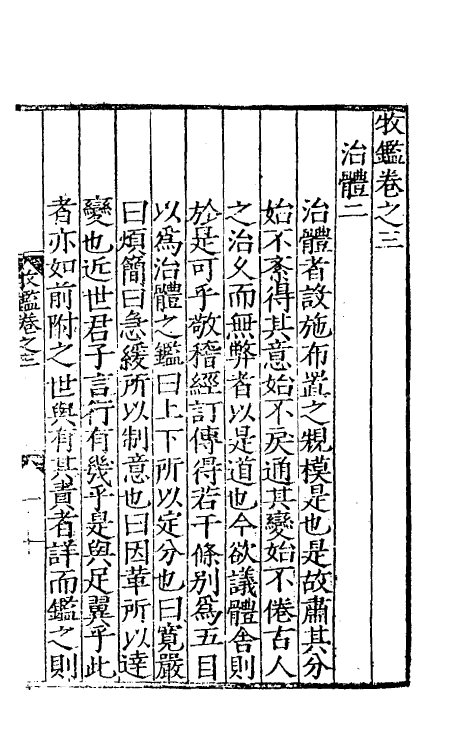 牧鑑卷之三
治體二
治體者設施布置之規模是也是故肅其分
始不紊得其意始不戾通其變始不倦古人
之治久而無弊者以是道也今欲議體舍則
於是可乎敬稽經訂傳得若干條別爲五目
以爲治體之鑑曰上下所以定分也曰寬嚴
曰煩簡曰急緩所以制意也曰因革所以達
變也近世君子言行有幾乎是與足翼乎此
者亦如前附之世與有其責者詳而鑑之則
牧鑑卷之三
一